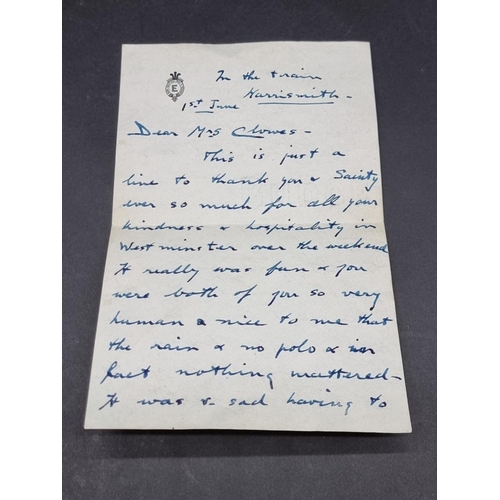 E
In the train
Harrismith -
1st June
Dear Mrs Clowes -
This is just a
line to thank you & Sainty
ever so much for all your
kindness & hospitality in
Westminster over the weekend
It really was fun & you
were both of you so very
human & nice to me that
the rain & no polo & in
fact nothing mattered -
It was v. sad having to